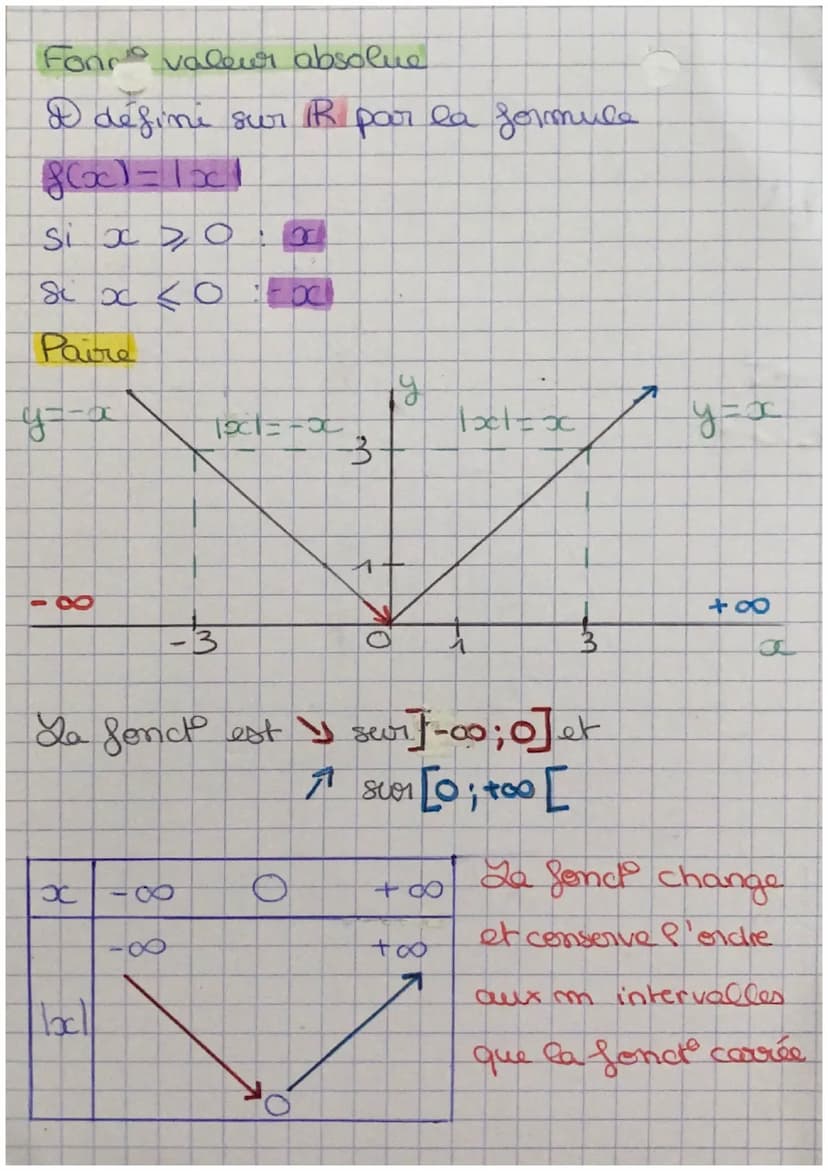 Fonc° valeur absolue
↦ défini sur ℝ par la formule
f(x)=|x|
Si x ⩾ 0 : x
Si x ⩽ 0 : -x
Paire
y
y=-x |x|=-x |x|=x y=x
3
1
-∞ +∞
-3 0 1 3 x
La fonct° est ↘ sur ]-∞;0] et
↗ sur [0;+∞[
x -∞ 0 +∞
-∞ +∞
|x|
0
La fonct° change
et conserve l'ordre
aux m intervalles
que la fonct° carrée